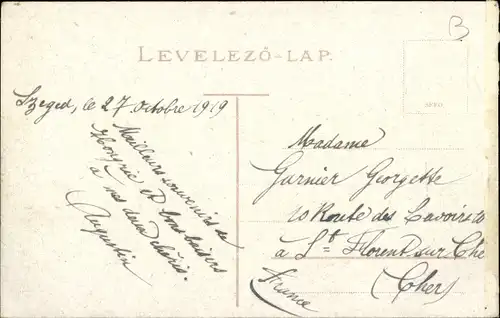 B
LEVELEZŐ-LAP.
Szeged, le 27 octobre 1919
Meilleurs souvenirs de
Hongrie et bons baisers
à mes deux chéris.
Augustin
Madame
Garnier Georgette
Route des Lavoirs
à St Florent sur Che
(Cher)
France